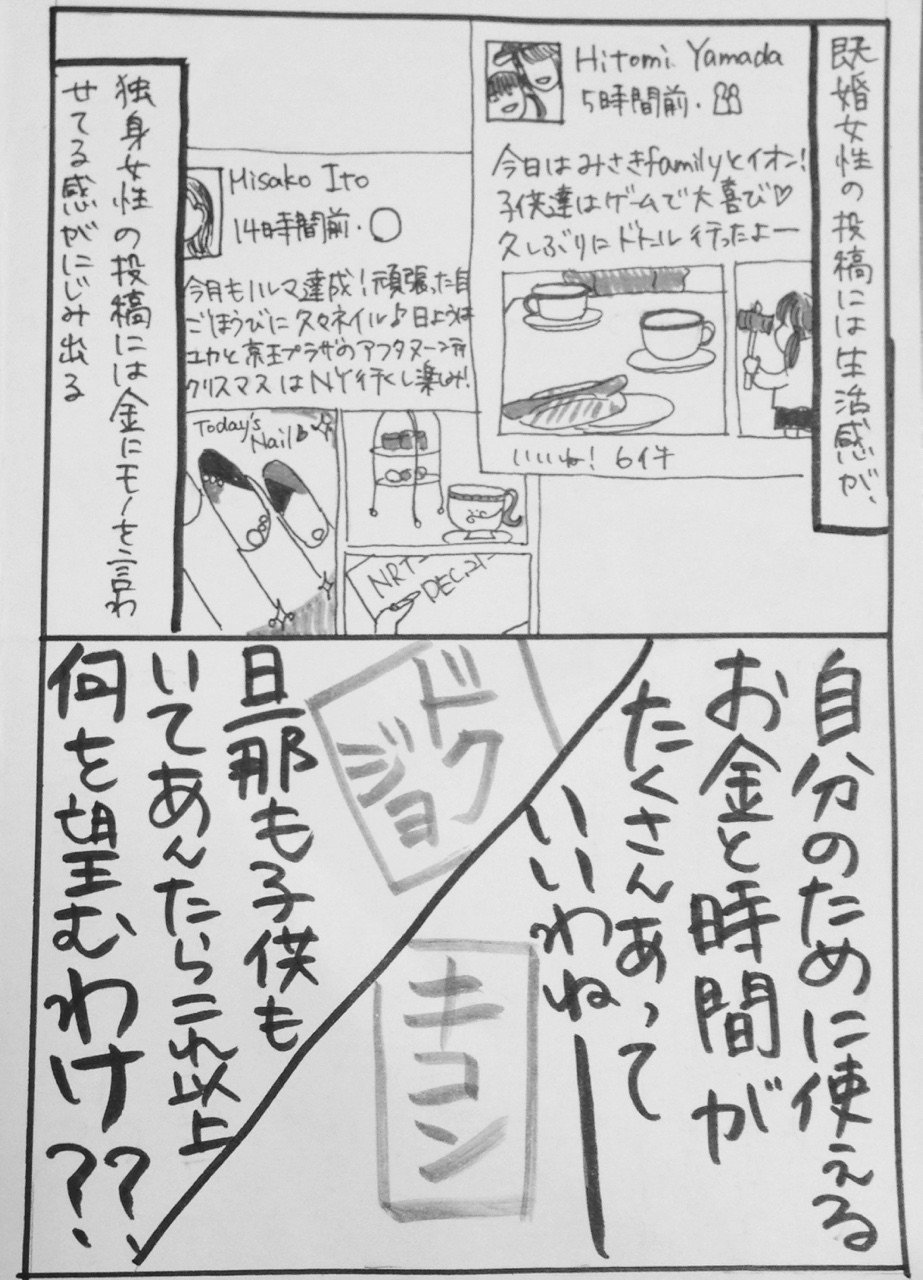 既婚女性の投稿には生活感が、
Hitomi Yamada
5時間前・
今日はみさきfamilyとイオン!
子供達はゲームで大喜び♡
久しぶりにドトール行ったよー
いいね! 6件
Misako Ito
14時間前・
今月もノルマ達成!頑張った自
ごほうびに久々ネイル♪日ようは
ユカと京王プラザのアフタヌーンティ
クリスマスはNY行くし楽しみ!
Today's
Nail♪
NRT-
DEC.21-
独身女性の投稿には金にモノを言わ
せてる感がにじみ出る
自分のために使える
お金と時間が
たくさんあって
いいわねー
キコン
ドク
ジョ
旦那も子供も
いてあんたらこれ以上
何を望むわけ??